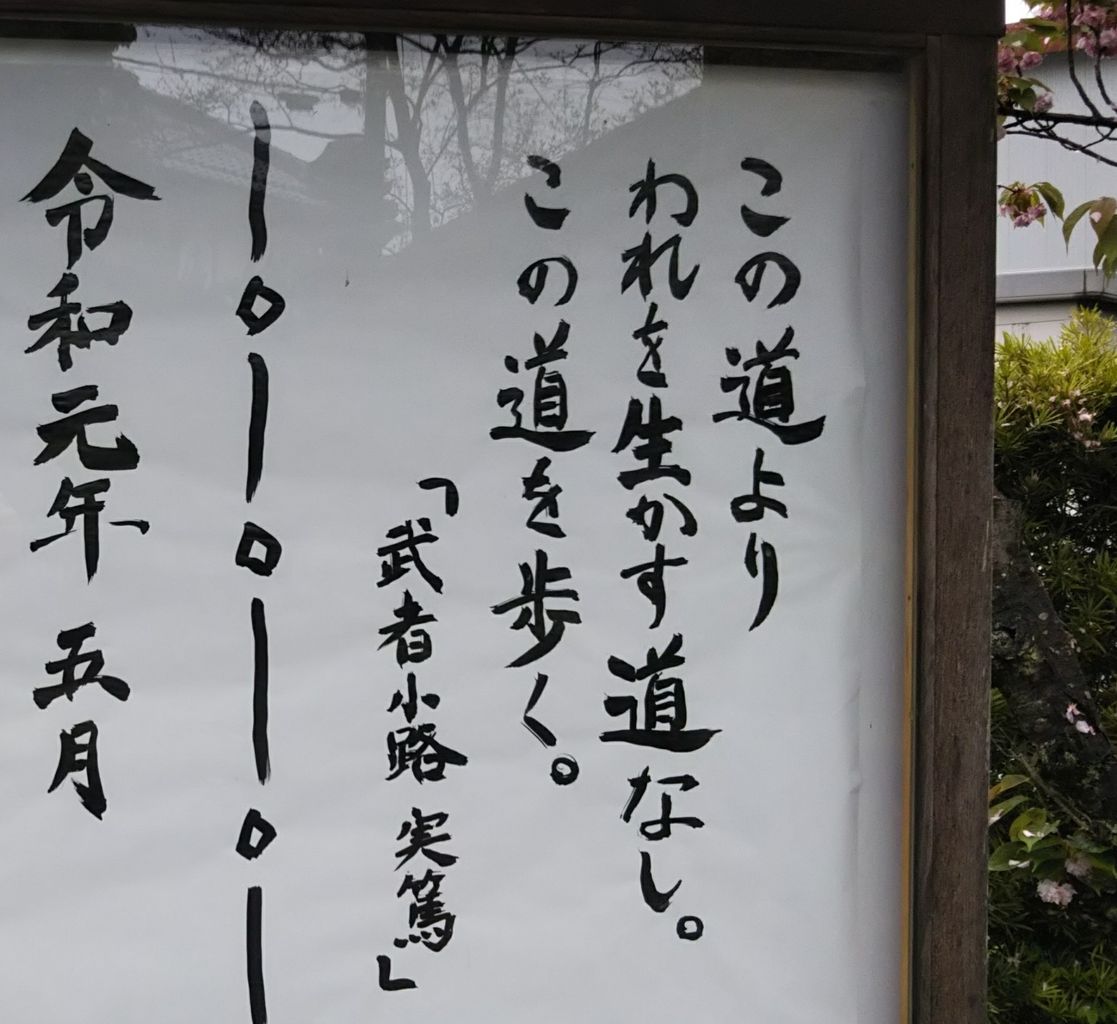 この道より
われを生かす道なし。
この道を歩く。
「武者小路 実篤」
令和元年 五月